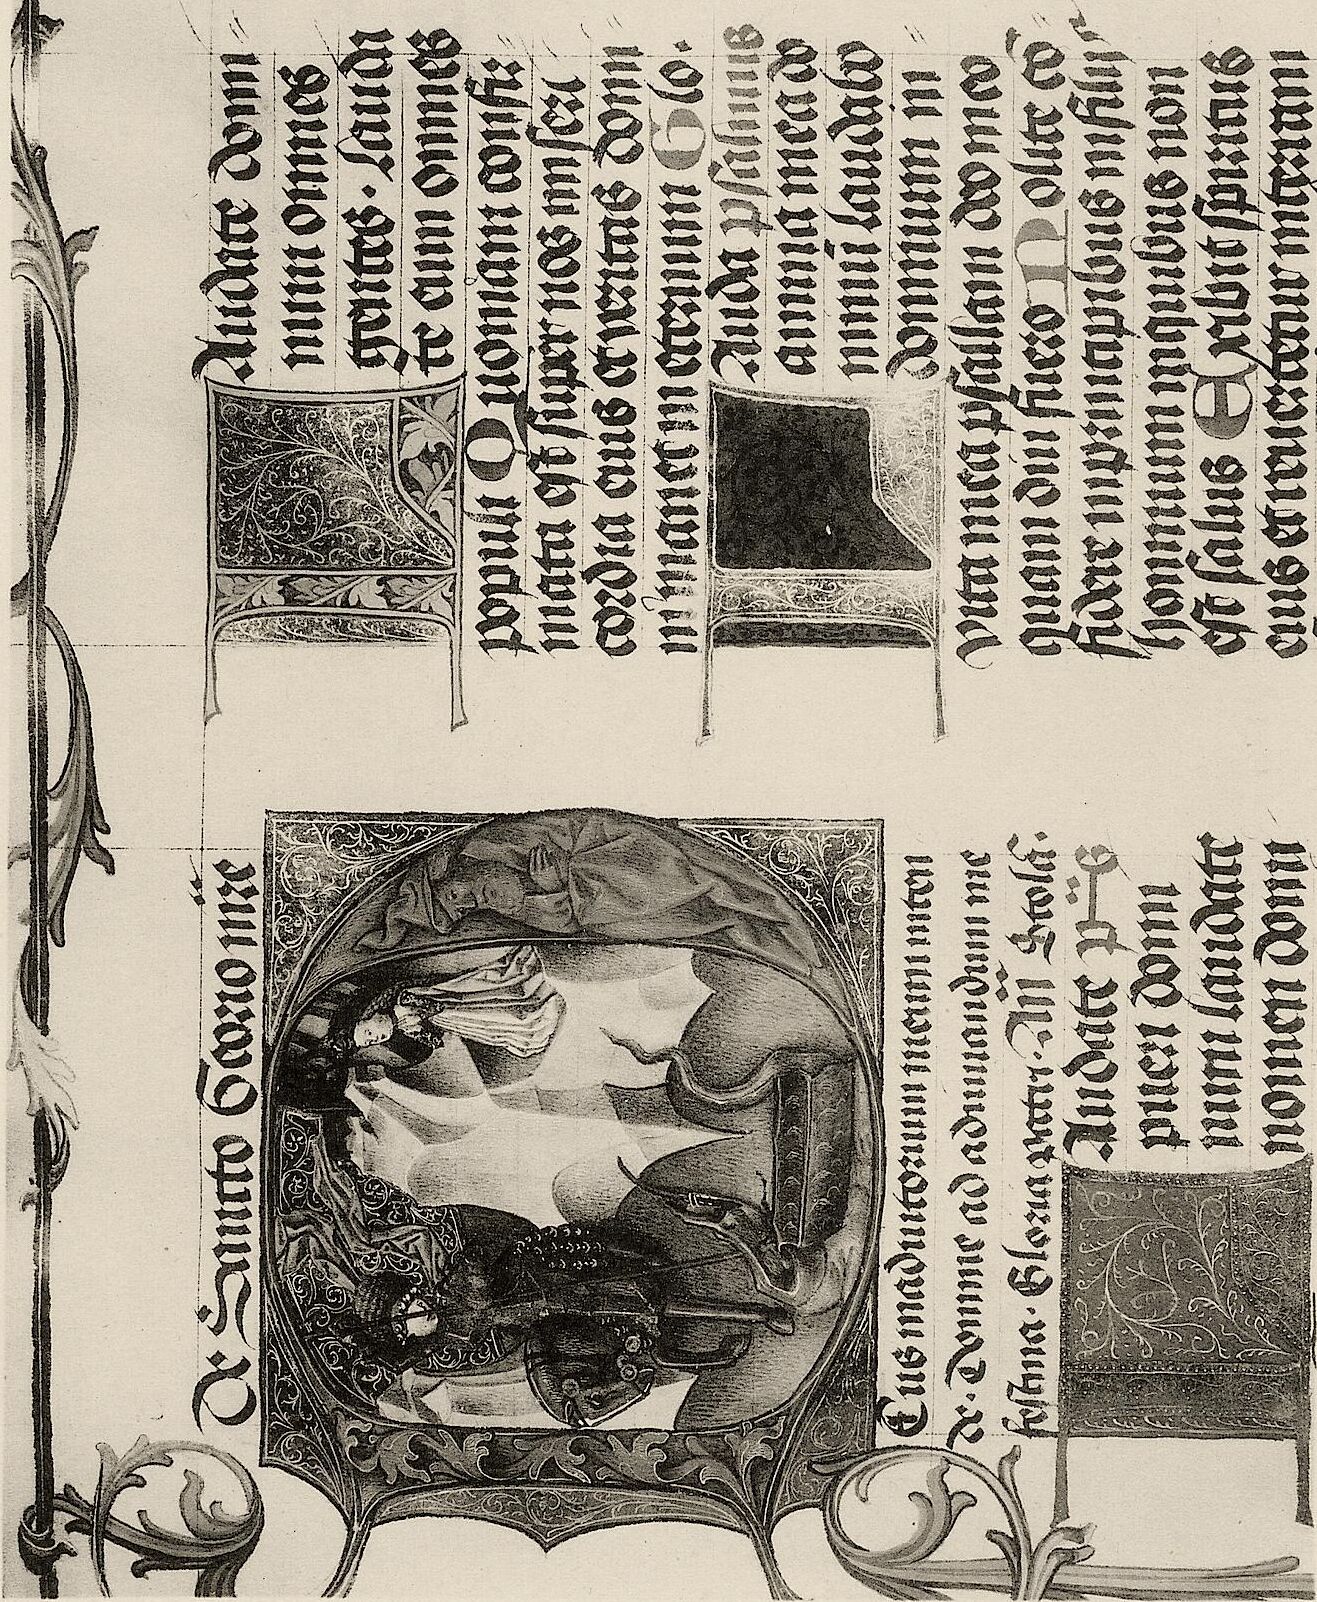 De Sancto Georio mr̄e
Deus in adiutorium meum inten
de. Domine ad adiuuandum me
festina. Gloria patri. Añ Stola.
Laudate ps
pueri domi
num laudate
nomen domi
Laudate domi
num omnes
gentes. Lauda
te eum omnes
populi Quoniam confir
mata est super nos miseri
cordia eius et veritas domi
ni manet in eternum Glo.
Lauda psalmus
anima mea do
minū laudabo
dominum in
vita mea psallam deo meo
quam diu fuero Nolite cō
fidere in principibus in filijs
hominum in quibus non
est salus Exibit spiritus
eius et reuertetur in terram